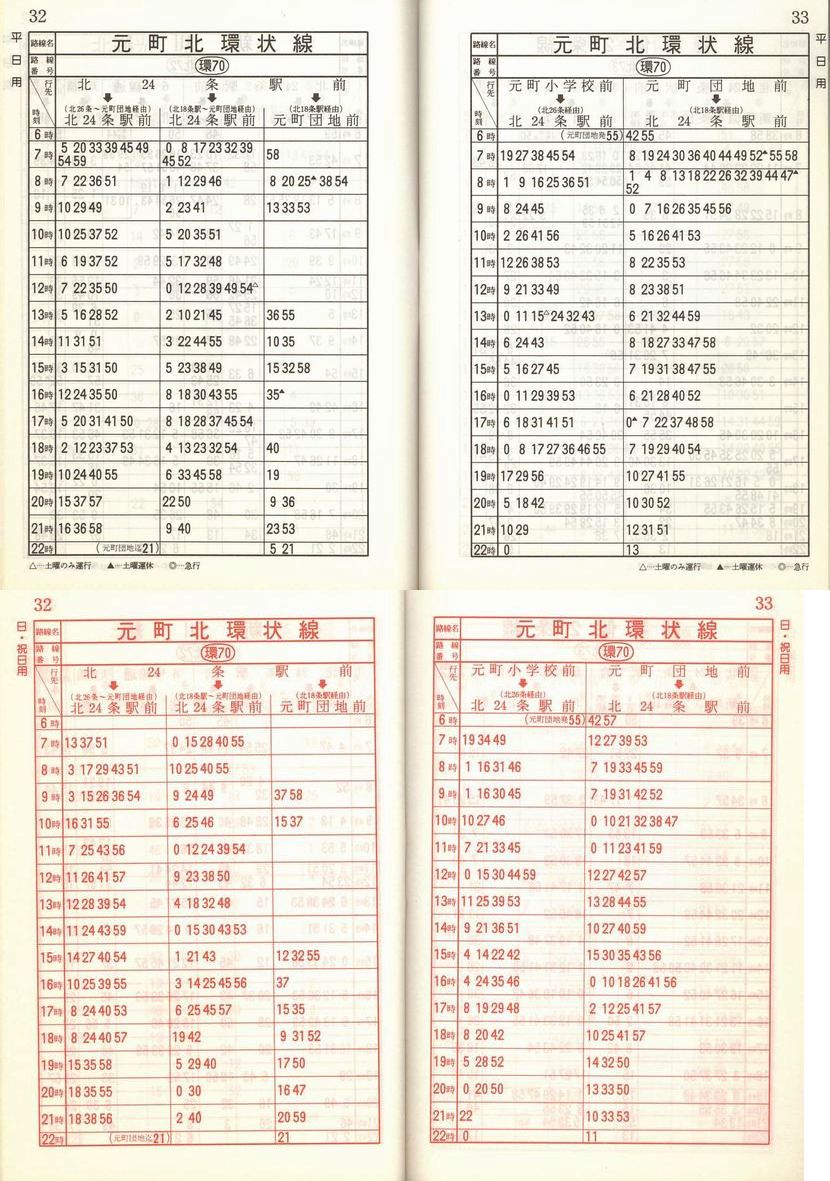 32
平日用
路線名 元町北環状線
路線番号 環70
行先 時刻 北24条駅前
(北26条～元町団地経由) 北24条駅前 (北18条駅～元町団地経由) 北24条駅前 (北18条駅経由) 元町団地前
6時
7時 5 20 33 39 45 49 54 59 0 8 17 23 32 39 45 52 58
8時 7 22 36 51 1 12 29 46 8 20 25▲ 38 54
9時 10 29 49 2 23 41 13 33 53
10時 10 25 37 52 5 20 35 51
11時 6 19 37 52 5 17 32 48
12時 7 22 35 50 0 12 28 39 49 54△
13時 5 16 28 52 2 10 21 45 36 55
14時 11 31 51 3 22 44 55 10 35
15時 3 15 31 50 5 23 38 49 15 32 58
16時 12 24 35 50 8 18 30 43 55 35▲
17時 5 20 31 41 50 8 18 28 37 45 54
18時 2 12 23 37 53 4 13 23 32 54 40
19時 10 24 40 55 6 33 45 58 19
20時 15 37 57 22 50 9 36
21時 16 36 58 9 40 23 53
22時 (元町団地迄21) 5 21
△…土曜のみ運行 ▲…土曜運休 ◎…急行
33
平日用
路線名 元町北環状線
路線番号 環70
行先 時刻 元町小学校前 元町団地前
(北26条経由) 北24条駅前 (北18条駅経由) 北24条駅前
6時 (元町団地発55) 42 55
7時 19 27 38 45 54 8 19 24 30 36 40 44 49 52▲ 55 58
8時 1 9 16 25 36 51 1 4 8 13 18 22 26 32 39 44 47▲ 52
9時 8 24 45 0 7 16 26 35 45 56
10時 2 26 41 56 5 16 26 41 53
11時 12 26 38 53 8 22 35 53
12時 9 21 33 49 8 23 38 51
13時 0 11 15△ 24 32 43 6 21 32 44 59
14時 6 24 43 8 18 27 33 47 58
15時 5 16 27 45 7 19 31 38 47 55
16時 0 11 29 39 53 6 21 28 40 52
17時 6 18 31 41 51 0▲ 7 22 37 48 58
18時 0 8 17 27 36 46 55 7 19 29 40 54
19時 17 29 56 10 27 41 55
20時 5 18 42 10 30 52
21時 10 29 12 31 51
22時 0 13
△…土曜のみ運行 ▲…土曜運休 ◎…急行
32
日・祝日用
路線名 元町北環状線
路線番号 環70
行先 時刻 北24条駅前
(北26条～元町団地経由) 北24条駅前 (北18条駅～元町団地経由) 北24条駅前 (北18条駅経由) 元町団地前
6時
7時 13 37 51 0 15 28 40 55
8時 3 17 29 43 51 10 25 40 55
9時 3 15 26 36 54 9 24 49 37 58
10時 16 31 55 6 25 46 15 37
11時 7 25 43 56 0 12 24 39 54
12時 11 26 41 57 9 23 38 50
13時 12 28 39 54 4 18 32 48
14時 11 24 43 59 0 15 30 43 53
15時 14 27 40 54 1 21 43 12 32 55
16時 10 25 39 55 3 14 25 45 56 37
17時 8 24 40 53 6 25 45 57 15 35
18時 8 24 40 57 19 42 9 31 52
19時 15 35 58 5 29 40 17 50
20時 18 35 55 0 30 16 47
21時 18 38 56 2 40 20 59
22時 (元町団地迄21) 21
33
日・祝日用
路線名 元町北環状線
路線番号 環70
行先 時刻 元町小学校前 元町団地前
(北26条経由) 北24条駅前 (北18条駅経由) 北24条駅前
6時 (元町団地発55) 42 57
7時 19 34 49 12 27 39 53
8時 1 16 31 46 7 19 33 45 59
9時 1 16 30 45 7 19 31 42 52
10時 10 27 46 0 10 21 32 38 47
11時 7 21 33 45 0 11 23 41 59
12時 0 15 30 44 59 12 27 42 57
13時 11 25 39 53 13 28 44 55
14時 9 21 36 51 10 27 40 59
15時 4 14 22 42 15 30 35 43 56
16時 4 24 35 46 0 10 18 26 41 56
17時 8 19 29 48 2 12 25 41 57
18時 8 20 42 10 25 41 57
19時 5 28 52 14 32 50
20時 0 20 50 13 33 50
21時 22 10 33 53
22時 0 11